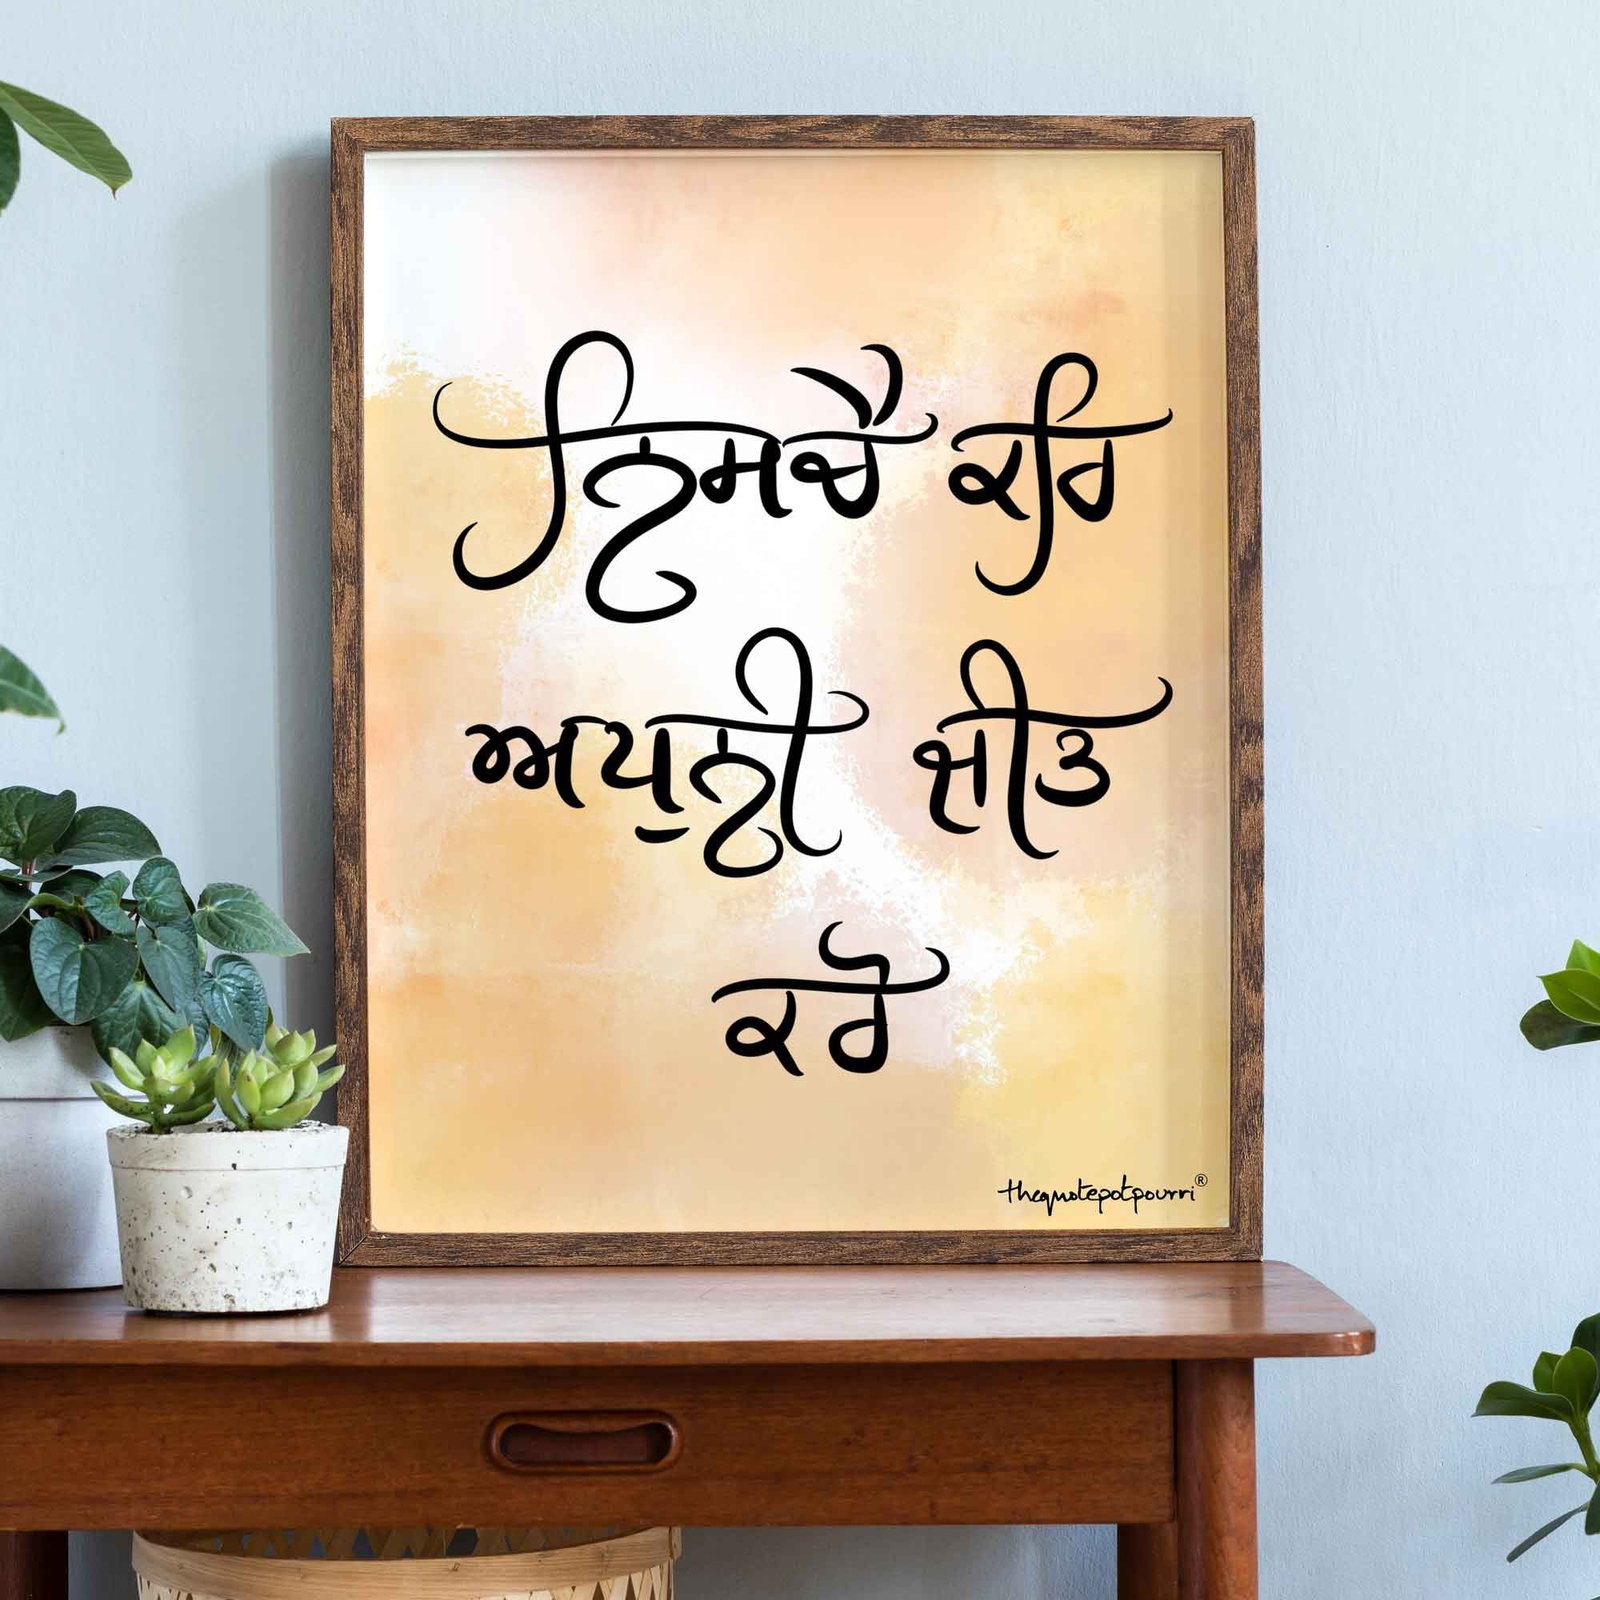 ਨਿਸਚੈ ਕਰਿ
ਅਪੁਨੀ ਜੀਤ
ਕਰੌ
thequotepotpourri®